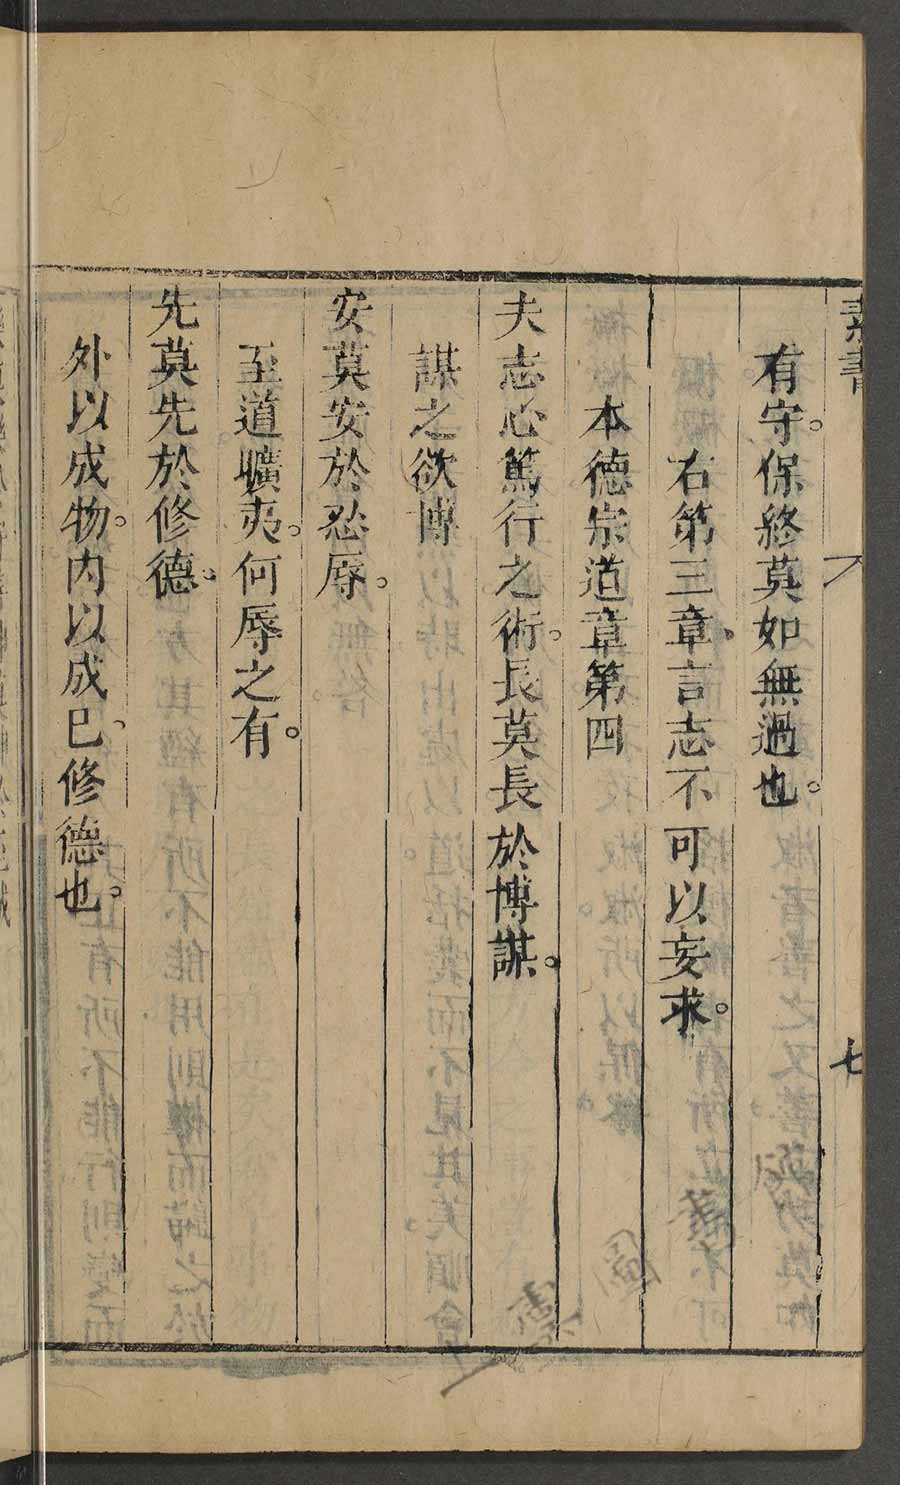 素書
七
有守。保終莫如無過也。
右第三章、言志不可以妄求。
本德宗道章第四
夫志心篤行之術。長莫長於博謀。
謀之欲博
安莫安於忍辱。
至道曠夷。何辱之有。
先莫先於修德。
外以成物。內以成巳、修德也。